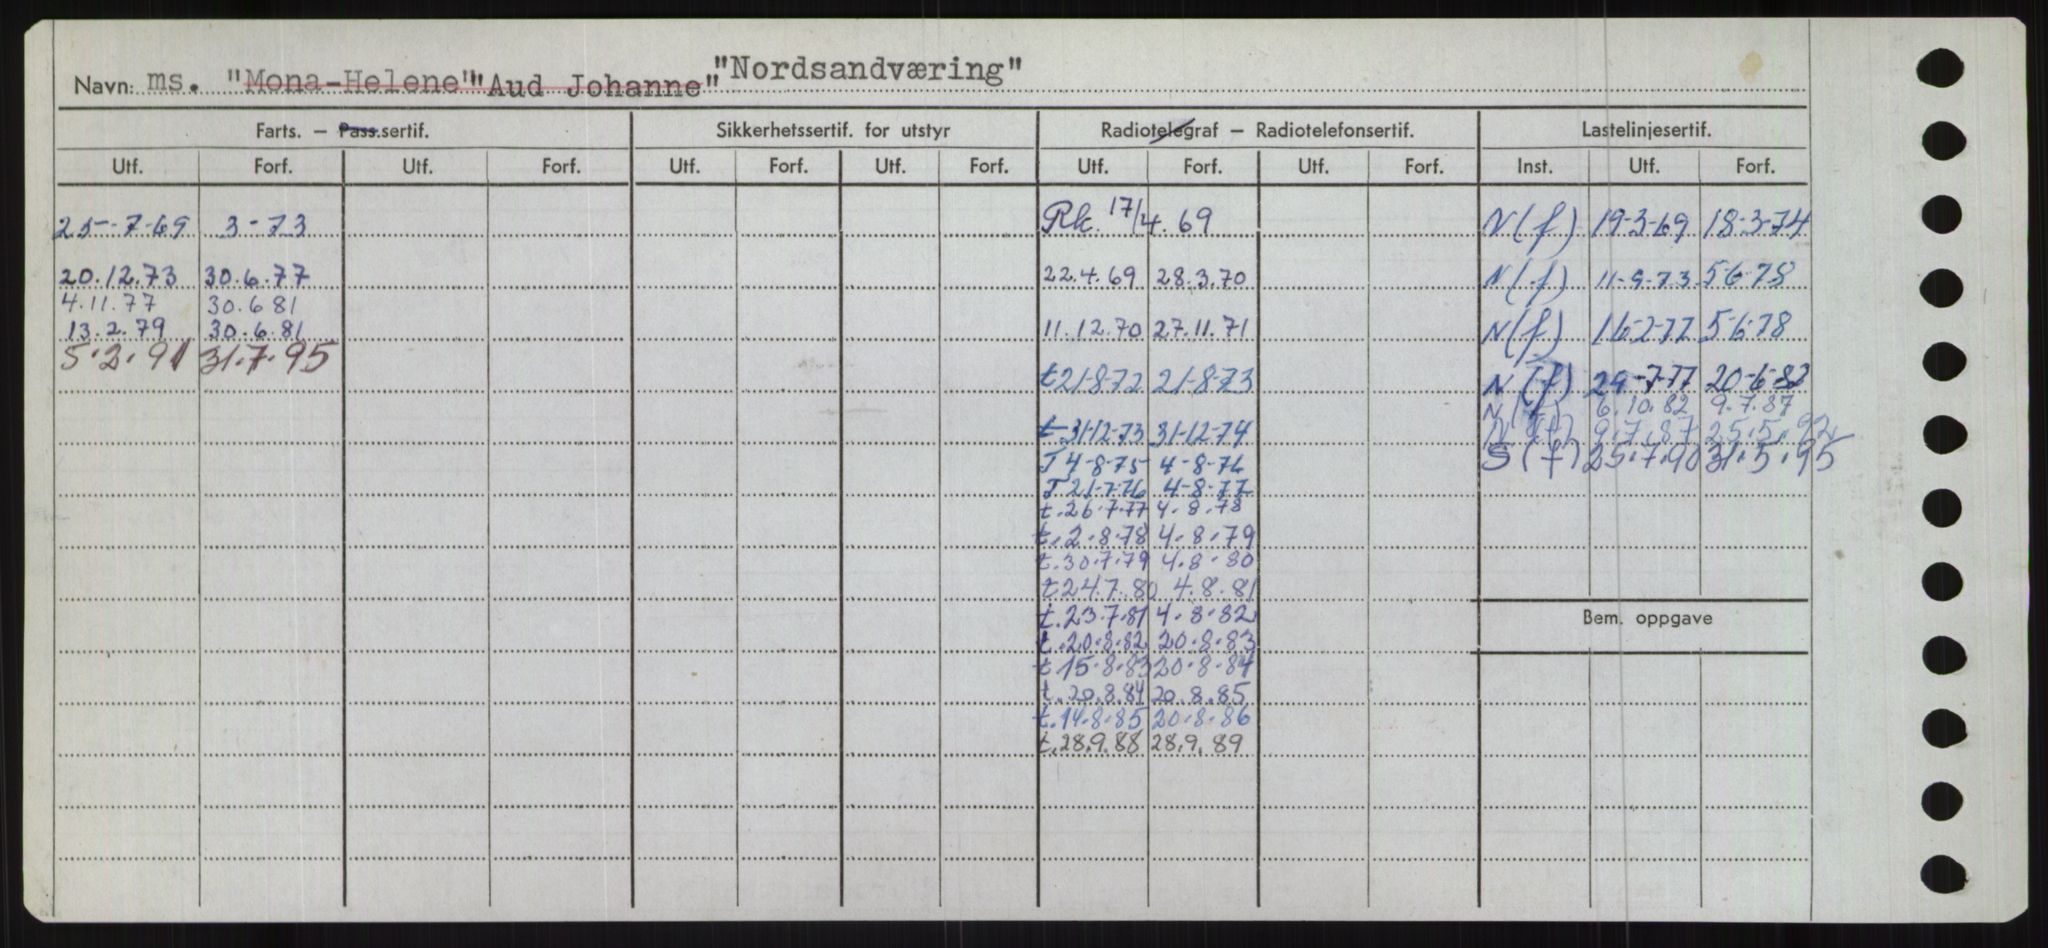 Navn: ms. "Mona-Helene" "Aud Johanne" "Nordsandværing"
Farts. – Pass.sertif. Sikkerhetssertif. for utstyr Radiotelegraf – Radiotelefonsertif. Lastelinjesertif.
Utf. Forf. Utf. Forf. Utf. Forf. Utf. Forf. Utf. Forf. Utf. Forf. Inst. Utf. Forf.
25-7-69 3-73 Rk. 17/4.69 N(f) 19-3-69 18-3-74
20.12.73 30.6.77 22.4.69 28.3.70 N(f) 11-9-73 5-6-78
4.11.77 30.6 81
13.2.79 30.6.81 11.12.70 27.11.71 N(f) 16-2-77 5-6-78
5.2.91 31.7.95
t 21-8-72 21-8-73 N(f) 29-7-77 20-6-82
N(f) 6.10.82 9.7.87
t 31-12-73 31-12-74 N(f) 9.7.87 25.5.92
T 4-8-75 4-8-76 S(f) 25.7.90 31.5.95
T 21-7-76 4-8-77
t.26.7.77 4.8.78
t.2.8.78 4.8.79
t.30.7.79 4.8.80
t 24.7.80 4.8.81
t.23.7.81 4.8.82
Bem. oppgave
t.20.8.82 20.8.83
t.15.8.83 20.8.84
t.20.8.84 20.8.85
t.14.8.85 20.8.86
t.28.9.88 28.9.89